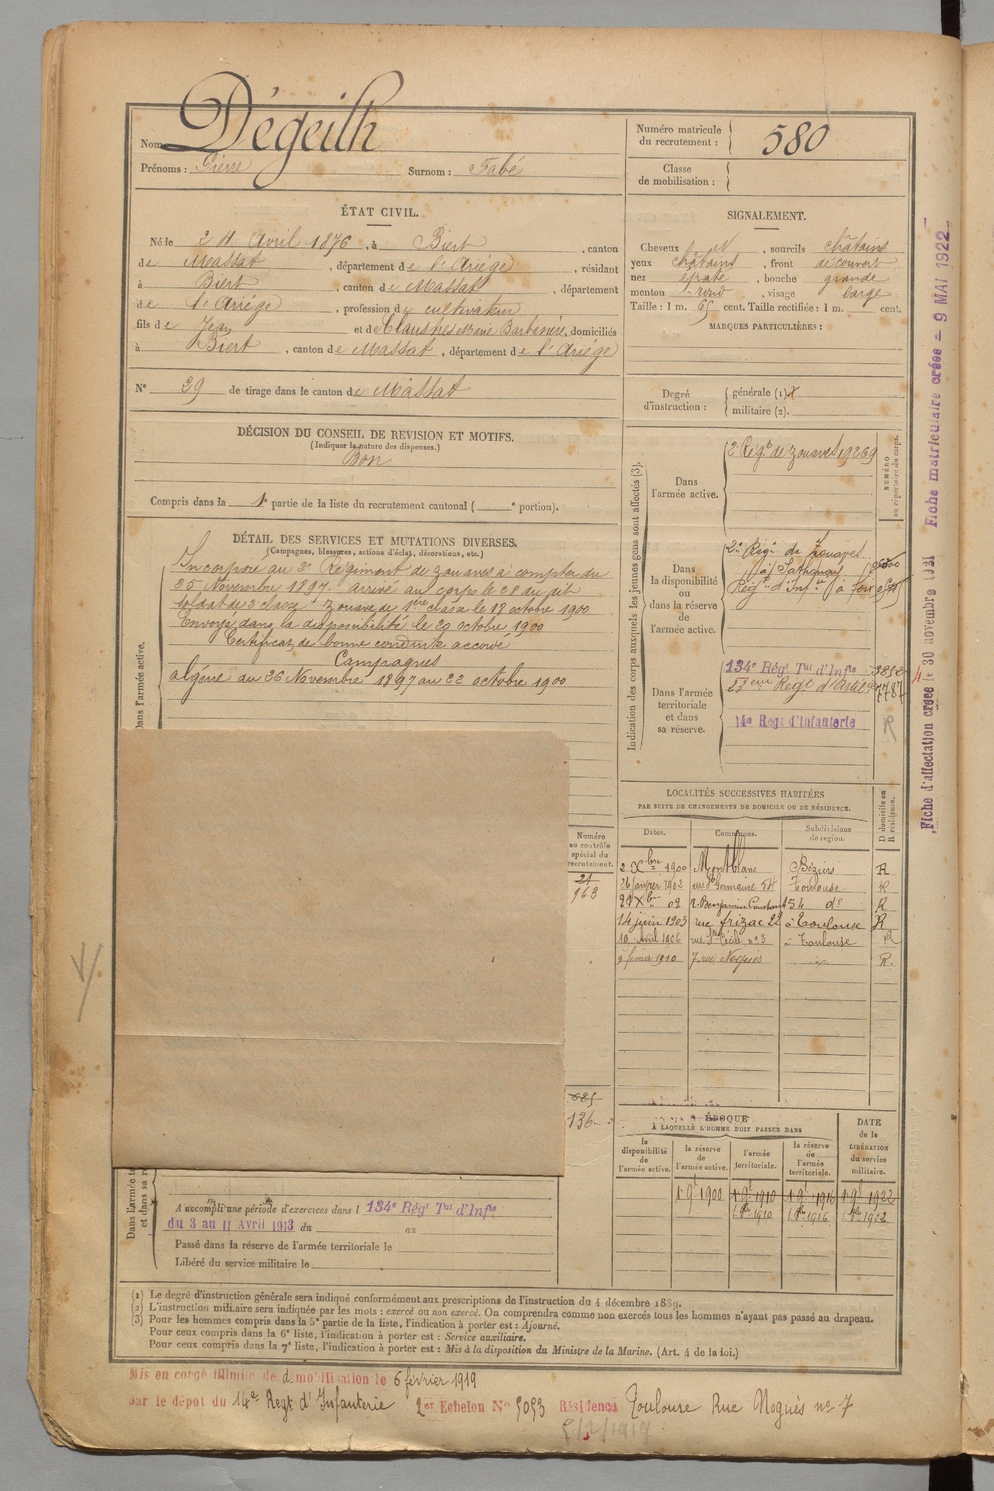 Nom Dégeilh
Prénoms : Pierre Surnom : Fabé
Numéro matricule du recrutement : 580
Classe de mobilisation :
ÉTAT CIVIL.
Né le 24 Avril 1876, à Biert, canton
de Massat, département de l'Ariège, résidant
à Biert, canton de Massat, département
de l'Ariège, profession de cultivateur
fils de Jean et de Marie, domiciliés
à Biert, canton de Massat, département de l'Ariège
N° 29 de tirage dans le canton de Massat
DÉCISION DU CONSEIL DE REVISION ET MOTIFS.
(Indiquer la nature des dispenses.)
Bon
Compris dans la 1e partie de la liste du recrutement cantonal ( e portion).
DÉTAIL DES SERVICES ET MUTATIONS DIVERSES.
(Campagnes, blessures, actions d'éclat, décorations, etc.)
Incorporé au Régiment de zouaves à compter du
25 Novembre 1897. arrivé au corps le 28 du dit
soldat de 2e classe Zouave de 1ère classe le 18 octobre 1900
Envoyé dans la disponibilité le 20 octobre 1900
Certificat de bonne conduite accordé
Campagnes
Algérie du 26 Novembre 1897 au 22 octobre 1900
Dans l'armée active.
Numéro au contrôle spécial du recrutement.
21
963
685
136
Dans l'armée
et dans sa
A accompli une période d'exercices dans l 134e Régt Tal d'Infie
du 3 au 11 Avril 1913 du au
Passé dans la réserve de l'armée territoriale le
Libéré du service militaire le
SIGNALEMENT.
Cheveux et, sourcils châtains
yeux châtains, front découvert
nez épaté, bouche grande
menton rond, visage large
Taille : 1 m. 65 cent. Taille rectifiée : 1 m. cent.
MARQUES PARTICULIÈRES :
Degré d'instruction : générale (1).
militaire (2).
Indication des corps auxquels les jeunes gens sont affectés (3).
NUMÉRO au répertoire du corps.
Dans l'armée active.
2e Régt de zouaves 19269
Dans la disponibilité ou dans la réserve de l'armée active.
2e Régt de zouaves
à Sathonay
Régt d'Infie à Foix
Dans l'armée territoriale et dans sa réserve.
134e Régt Tal d'Infie
Régt d'Artie
14e Régt d'Infanterie
R
LOCALITÉS SUCCESSIVES HABITÉES
PAR SUITE DE CHANGEMENTS DE DOMICILE OU DE RÉSIDENCE.
Dates. Communes. Subdivisions de région. D domicile ou R résidence.
2 Xbre 1900 Montblanc Béziers R
26 janvier 1902 rue St Germaine Toulouse R
Xbre 02 r. Benjamin Constant 54 do R
14 juin 1903 rue Frizac 22 à Toulouse R
10 avril 1906 rue Ste Cécile n° 3 à Toulouse R
9 février 1910 7 rue Noguès R.
ÉPOQUE
A LAQUELLE L'HOMME DOIT PASSER DANS
la disponibilité de l'armée active. la réserve de l'armée active. l'armée territoriale. la réserve de l'armée territoriale. DATE de la LIBÉRATION du service militaire.
1 9e 1900 1 9e 1910 1 9e 1916 1 9e 1922
1 8bre 1910 1 8bre 1916 1 8bre 1922
(1) Le degré d'instruction générale sera indiqué conformément aux prescriptions de l'instruction du 4 décembre 1889.
(2) L'instruction militaire sera indiquée par les mots : exercé ou non exercé. On comprendra comme non exercés tous les hommes n'ayant pas passé au drapeau.
(3) Pour les hommes compris dans la 5e partie de la liste, l'indication à porter est : Ajourné.
Pour ceux compris dans la 6e liste, l'indication à porter est : Service auxiliaire.
Pour ceux compris dans la 7e liste, l'indication à porter est : Mis à la disposition du Ministre de la Marine. (Art. 4 de la loi.)
Mis en congé illimité de démobilisation le 6 février 1919
par le dépot du 14e Regt d'Infanterie 2er Echelon N° 5053 Résidence Toulouse Rue Noguès n° 7
5/2/1919
Fiche d'affectation créée le 30 novembre 1921 Fiche matriculaire créée - 9 MAI 1922